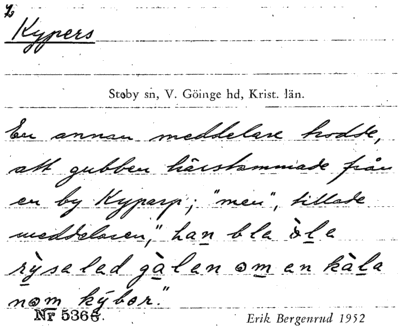 Kypers
Stoby sn, V. Göinge hd, Krist. län.
En annan meddelare trodde,
att gubben härstammade från
en by Kyparp; "men", tillade
meddelaren, "han bla òla
rỳsalad gàlen om en kàla
nom kýbor."
Nr 5368.
Erik Bergenrud 1952